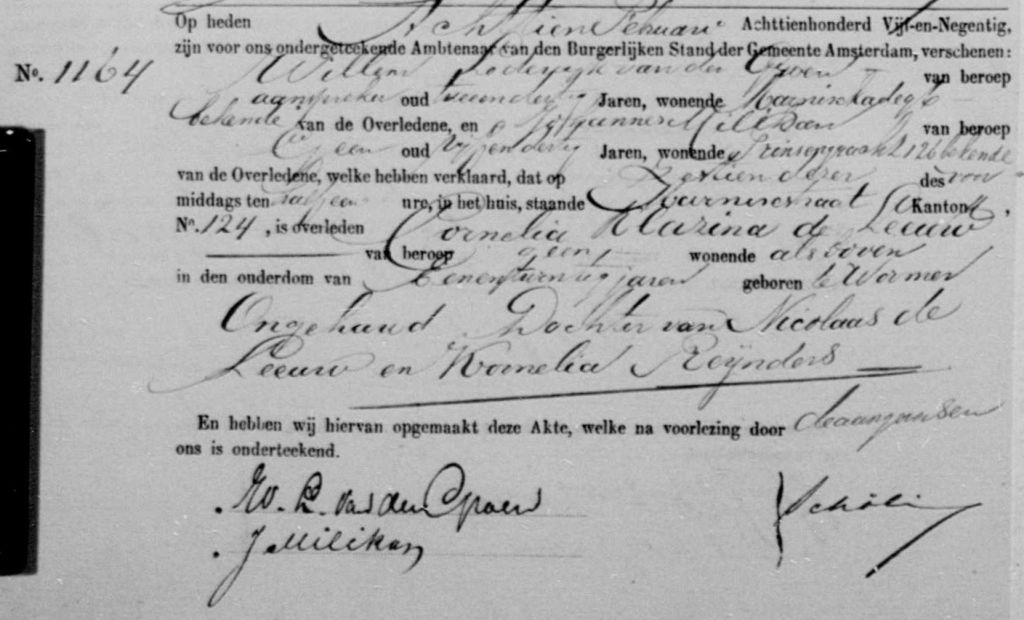 Op heden Achttien Februari Achttienhonderd Vijf-en-Negentig,
zijn voor ons ondergeteekende Ambtenaar van den Burgerlijken Stand der Gemeente Amsterdam, verschenen:
No. 1164 Willem Lodewijk van der van beroep
aanspreker oud Jaren, wonende Marnixkade
bekende van de Overledene, en Johannes Milikan van beroep
Geen oud vijfendertig Jaren, wonende Prinsengracht 126 bekende
van de Overledene, welke hebben verklaard, dat op Zestien dezer des voor
middags ten half een ure, in het huis, staande Marnixstraat Kanton
No. 124, is overleden Cornelia Klazina de Leeuw
van beroep geen wonende als boven
in den ouderdom van Eenentwintig jaren geboren te Wormer
Ongehuwd Dochter van Nicolaas de
Leeuw en Kornelia Reijnders
En hebben wij hiervan opgemaakt deze Akte, welke na voorlezing door de aangevers en
ons is onderteekend.
W. L. van der
J Milikan